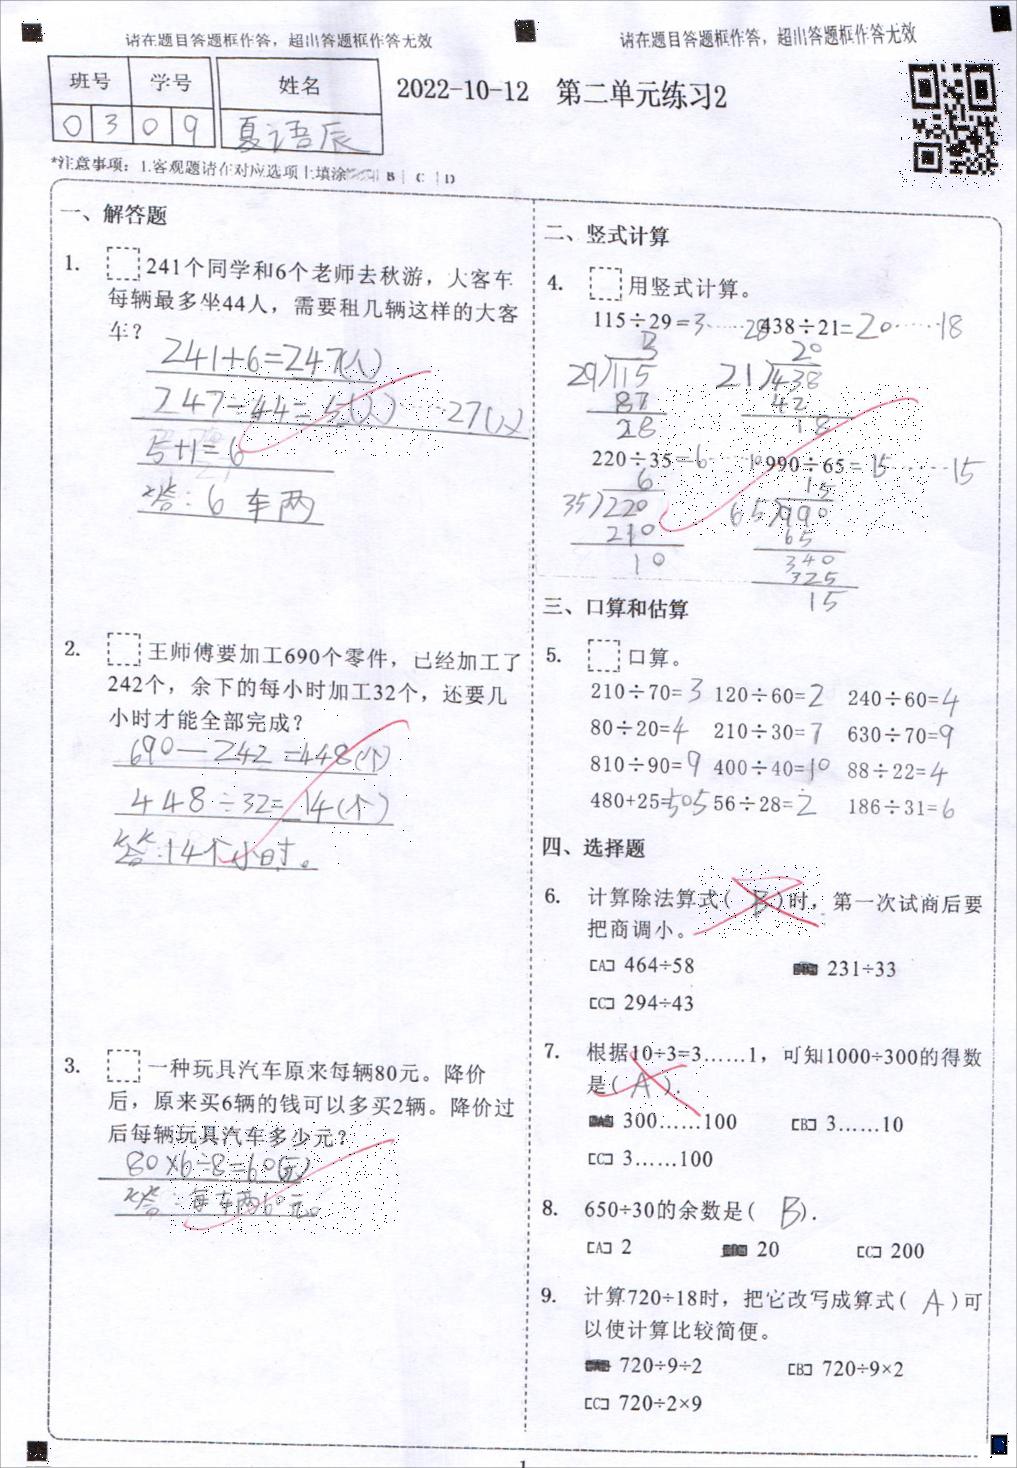 请在题目答题框作答，超出答题框作答无效
请在题目答题框作答，超出答题框作答无效
班号 学号 姓名
0 3 0 9 夏语辰
2022-10-12 第二单元练习2
*注意事项：1.客观题请在对应选项上填涂 B | C | D
一、解答题
1. 241个同学和6个老师去秋游，大客车
每辆最多坐44人，需要租几辆这样的大客
车？
241+6=247(人)
247÷44=5(人)……27(人)
5+1=6
答：6 车两
2. 王师傅要加工690个零件，已经加工了
242个，余下的每小时加工32个，还要几
小时才能全部完成？
690－242=448(个)
448÷32=14(个)
答：14个小时。
3. 一种玩具汽车原来每辆80元。降价
后，原来买6辆的钱可以多买2辆。降价过
后每辆玩具汽车多少元？
80×6÷8=60(元)
答：每车两60元。
二、竖式计算
4. 用竖式计算。
115÷29=3……28 438÷21=20……18
3 20
29)115 21)438
87 42
28 18
220÷35=6……10 990÷65=15……15
6 15
35)220 65)990
210 65
10 340
325
15
三、口算和估算
5. 口算。
210÷70=3 120÷60=2 240÷60=4
80÷20=4 210÷30=7 630÷70=9
810÷90=9 400÷40=10 88÷22=4
480+25=505 56÷28=2 186÷31=6
四、选择题
6. 计算除法算式( B )时，第一次试商后要
把商调小。
[A] 464÷58 231÷33
[C] 294÷43
7. 根据10÷3=3……1，可知1000÷300的得数
是( A ).
300……100 [B] 3……10
[C] 3……100
8. 650÷30的余数是( B ).
[A] 2 20 [C] 200
9. 计算720÷18时，把它改写成算式( A )可
以使计算比较简便。
720÷9÷2 [B] 720÷9×2
[C] 720÷2×9
1